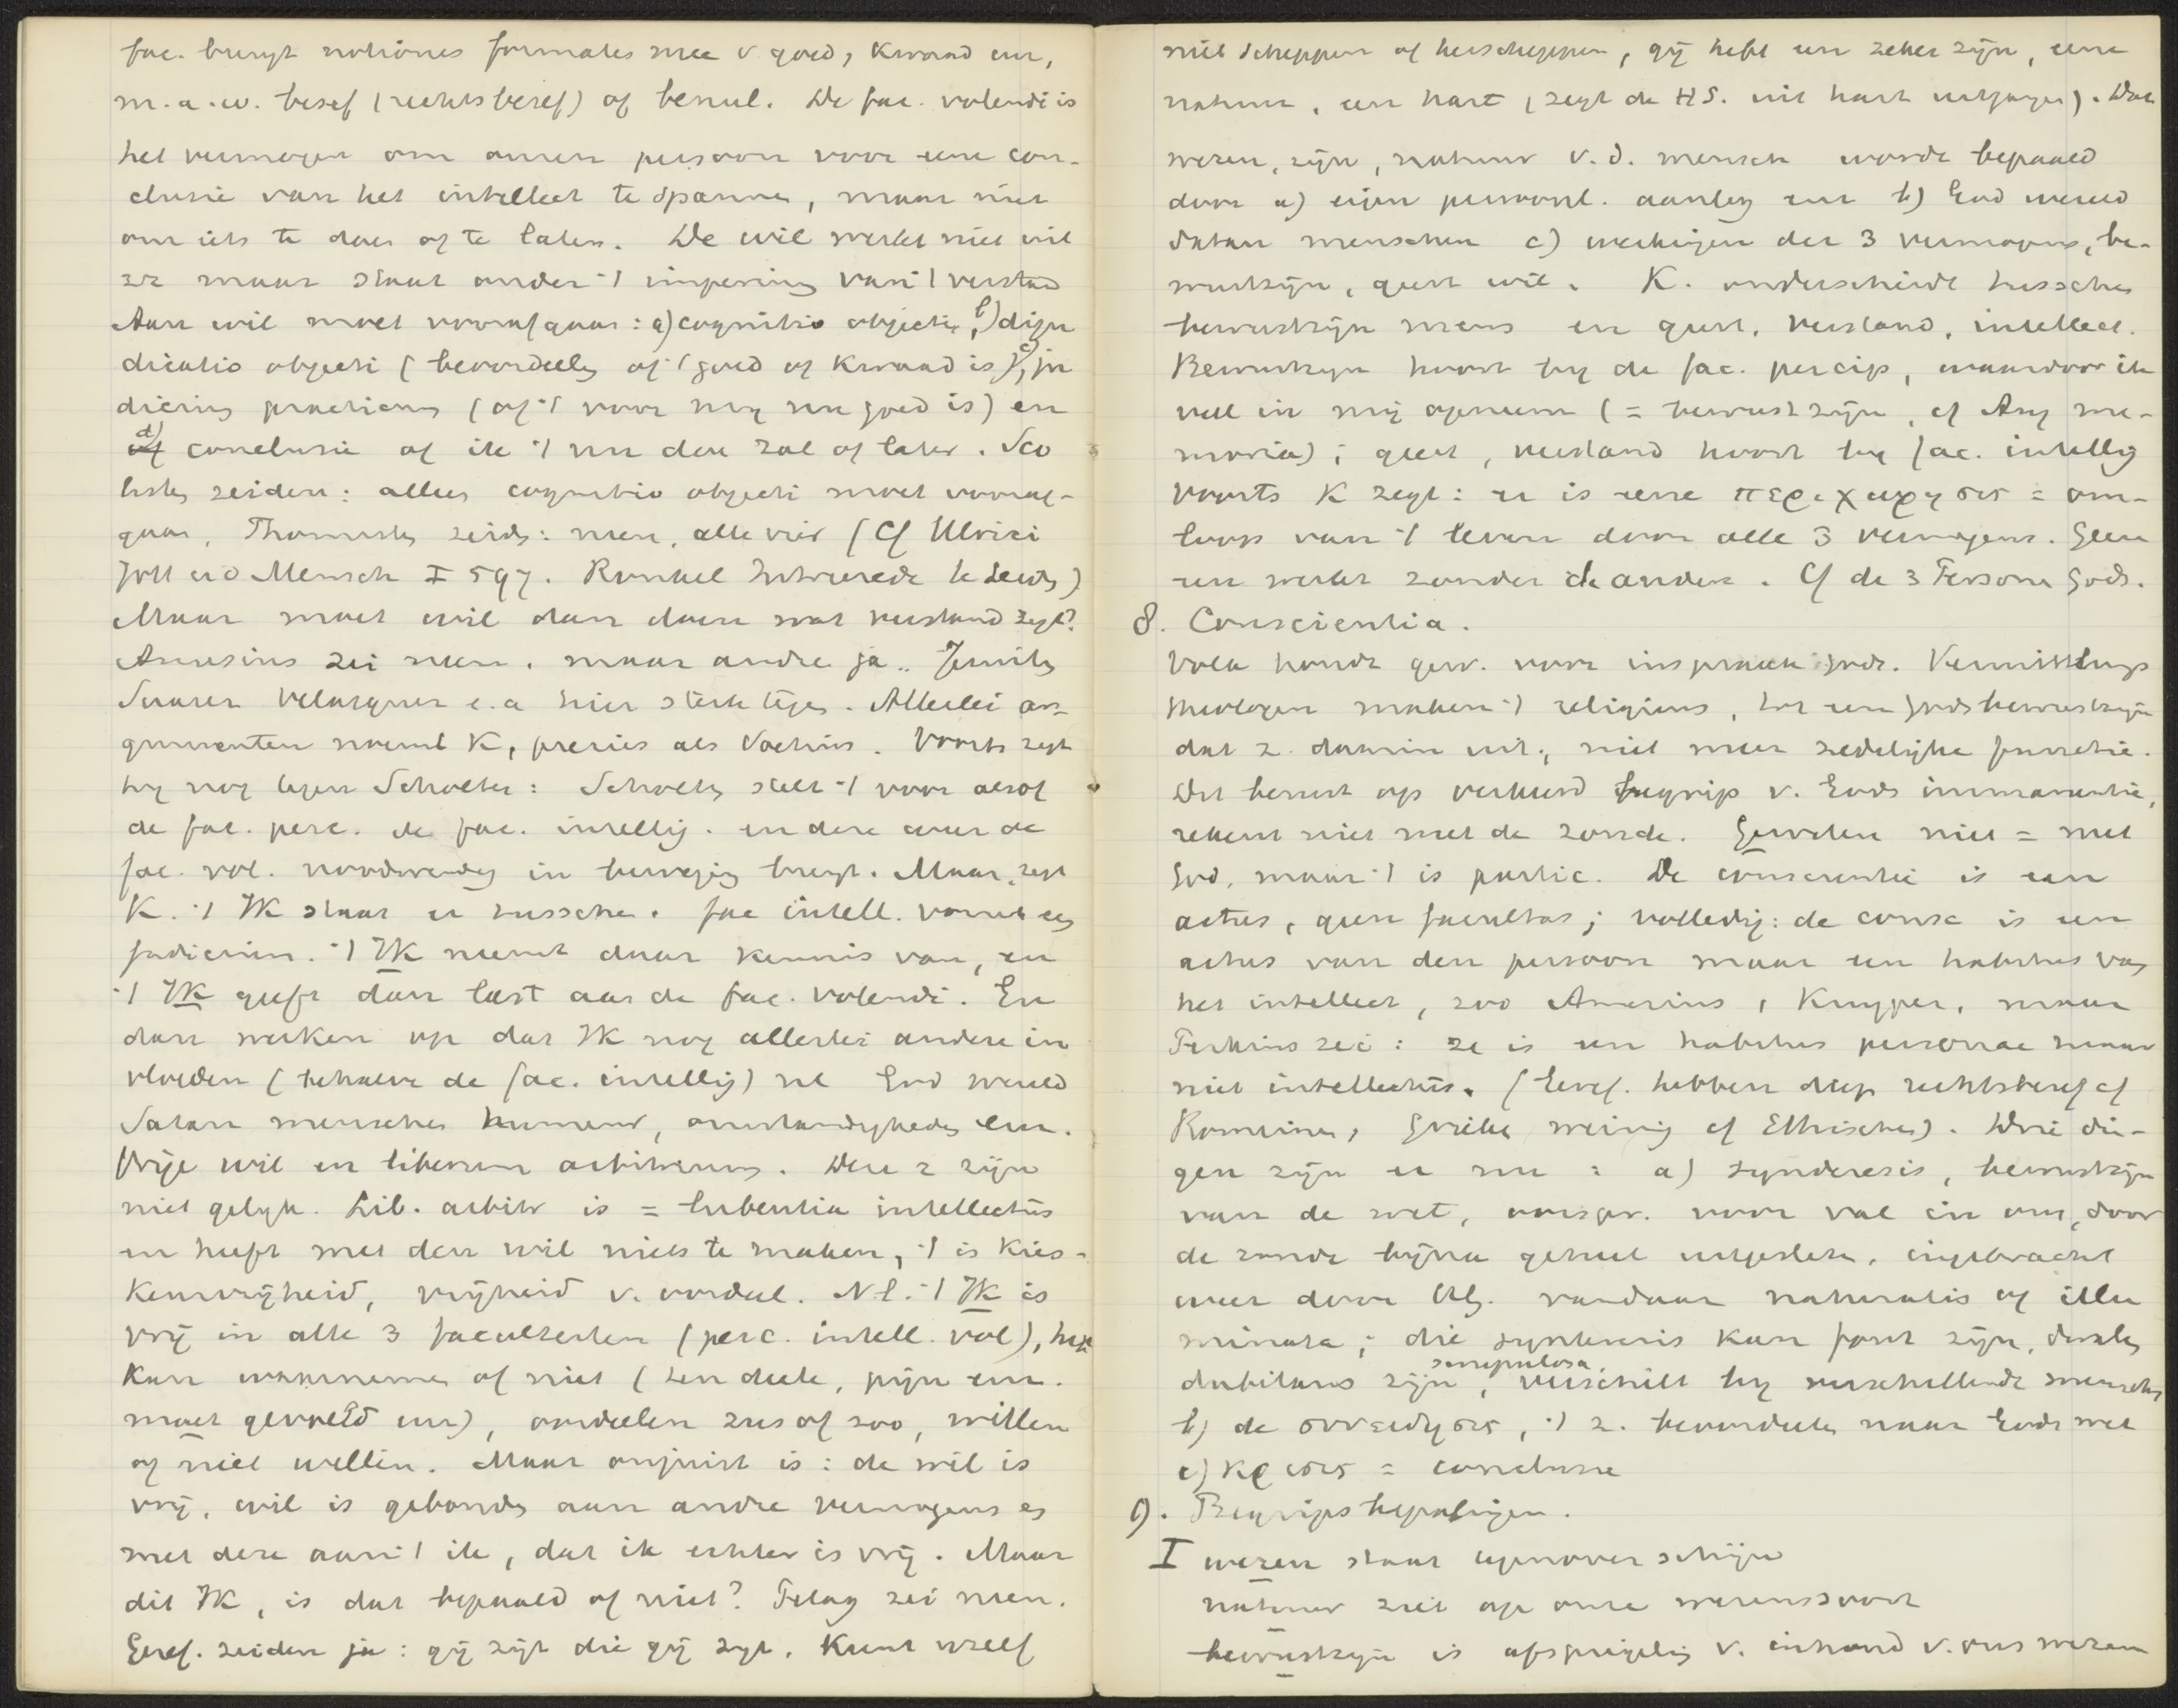 fac. brengt notiones formales mee v goed, kwaad enz,
m.a.w. besef (rechtsbesef) of benul. De fac. volendi is
het vermogen om onzen persoon voor eene con-
clusie van het intellect te spannen, maar niet
om iets te doen of te laten. De wil werkt niet uit
zz maar staat onder 't imperium van 't verstand
Aan wil moet voorafgaan: a) cognitio objecti, b) diju
dicatio objecti (beoordeeling of 't goed of kwaad is), c) ju
dicium practicum (of 't voor mij nu goed is) en
d) conclusie of ik 't nu doen zal of laten. Sco
tisten zeiden: alleen cognitio objecti moet vooraf-
gaan, Thomisten zeiden: neen, alle vier (Cf Ulrici
Gott u d Mensch I 597. Runkel Intreerede te Leiden)
Maar moet wil dan doen wat verstand zegt?
Amesius zei neen, maar andre ja. Jezuiten
Suarez Velasquez e.a. hier sterk tegen. Allerlei ar-
gumenten noemt K, precies als Voetius. Voorts zegt
hij nog tegen Scholten: Scholten stelt 't voor alsof
de fac. perc. de fac. intellig. en deze weer de
fac. vol. noodwendig in beweging brengt. Maar, zegt
K. 't IK staat er tusschen. fac intell. vormt een
judicium. 't IK neemt daar kennis van, en
't IK geeft dan last aan de fac. volendi. En
dan werken op dat IK nog allerlei andere in
vloeden (behalve de fac. intellig) nl God wereld
Satan menschen humeur, omstandigheden enz.
Vrije wil en liberum arbitrium. Deze 2 zijn
niet gelijk. Lib. arbitr is = lubentia intellectus
en heeft met den wil niets te maken, 't is kies-
keurvrijheid, vrijheid v. oordeel. N.l. 't IK is
vrij in alle 3 faculteiten (perc. intell. vol), het
kan waarnemen of niet (ten deele, pijn enz.
moet gevoeld enz), oordeelen zus of zoo, willen
of niet willen. Maar onjuist is: de wil is
vrij, wil is gebonden aan andre vermogens en
met deze aan 't ik, dat ik echter is vrij. Maar
dit IK, is dat bepaald of niet? Pelag zei neen.
Geref. zeiden ja: gij zijt die gij zijt. Kunt uzelf
niet scheppen of herscheppen, gij hebt een zeker zijn, eene
natuur, een hart (zegt de HS. uit hart uitgangen). Dat
wezen, zijn, natuur v.d. mensch wordt bepaald
door a) eigen persoonl. aanleg enz b) God wereld
Satan menschen c) werkingen der 3 vermogens, be-
wustzijn, geest wil. K. onderscheidt tusschen
bewustzijn mens en geest, verstand, intellect.
Bewustzijn hoort bij de fac. percip, waardoor ik
veel in mij opneem (= bewust zijn, cf Aug me-
moria); geest, verstand hoort bij fac. intellig
Voorts K zegt: er is eene περιχωρησις = om-
loop van 't leven door alle 3 vermogens. Geen
een werkt zonder de andere. Cf de 3 Personen Gods.
8. Conscientia.
Volk houdt gew. voor inspraak Gods. Vermittlungs
theologen maken 't religieus, tot een godsbewustzijn
dat z. daarin uit, niet meer zedelijke functie.
Dit berust op verkeerd begrip v. Gods immanentie,
rekent niet met de zonde. Geweten niet = met
God, maar 't is partic. De conscientie is een
actus, geen facultas; volledig: de consc is een
actus van den persoon maar een habitus van
het intellect, zoo Amesius, Kuyper, maar
Perkins zei: ze is een habitus personae maar
niet intellectus. (Geref. hebben diep rechtsbesef cf
Romeinen, Grieken weinig cf Ethischen). Drie din-
gen zijn er nu: a) synderesis, bewustzijn
van de wet, oorspr. voor val in ons, door
de zonde bijna geheel uitgesleten, ingebracht
weer door Chr. vandaar naturalis of illu
minata; die synteresis kan fout zijn, dwalen
dubitans zijn, scrupulosa, verschilt bij verschillende menschen
b) de συνειδησις, 't z. beoordeelen naar Gods wet
c) κρισις = conclusie
9. Begripsbepalingen.
I wezen staat tegenover schijn
natuur ziet op onze wezenssoort
bewustzijn is afspiegeling v. inhoud v. ons wezen